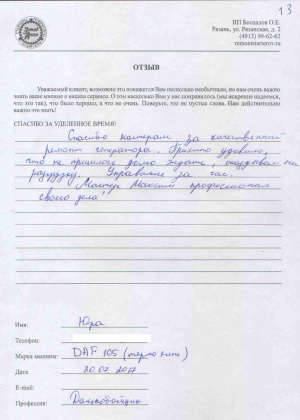 13
ИП Беспалов О.Е.
Рязань, ул. Рязанская, д. 2
(4912) 99-62-62
remontstarterov.ru
ОТЗЫВ
Уважаемый клиент, возможно это покажется Вам несколько необычным, но нам очень важно
знать ваше мнение о нашем сервисе. О том насколько Вам у нас понравилось (мы искренне надеемся,
что это так), что было хорошо, а что не очень. Поверьте, это не пустые слова. Нам действительно
важно это знать!
СПАСИБО ЗА УДЕЛЕННОЕ ВРЕМЯ!
Спасибо мастерам за качественный
ремонт генератора. Приятно удивило,
что не пришлось долго ждать, опаздывал на
разгрузку. Управились за час.
Мастер Максим профессионал
своего дела!
Имя: Юра
Телефон:
Марка машины: DAF 105 (
Дата 30.07.2017
E-mail:
Профессия: Дальнобойщик